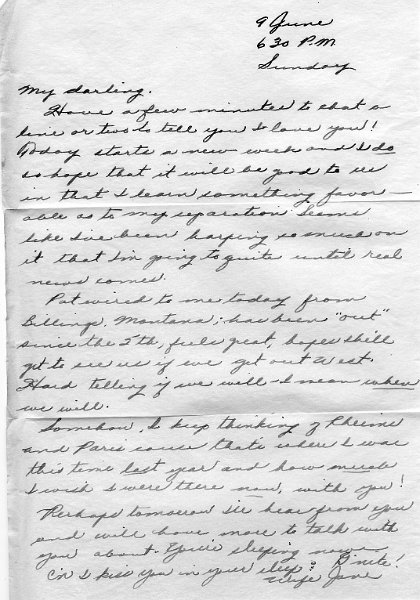 9 June
630 P.M.
Sunday
My darling.
Have a few minutes to chat a
line or two to tell you I love you!
Today starts a new week and I do
so hope that it will be good to us
in that I learn something favor-
able as to my separation. Seems
like I've been harping so much on
it that I'm going to quite until real
news comes.
Pat wired to me today from
Billings, Montana; has been "out"
since the 5th, feels great, hopes she'll
get to see us if we get out West.
Hard telling if we will - I mean when
we will.
Somehow, I keep thinking of Rheims
and Paris cause thats where I was
this time last year and how much
I wish I were there now, with you!
Perhaps tomorrow I'll hear from you
and will have more to talk with
you about. You're sleeping now -
C'n I kiss you in your sleep? G'nite!
Wife Jane